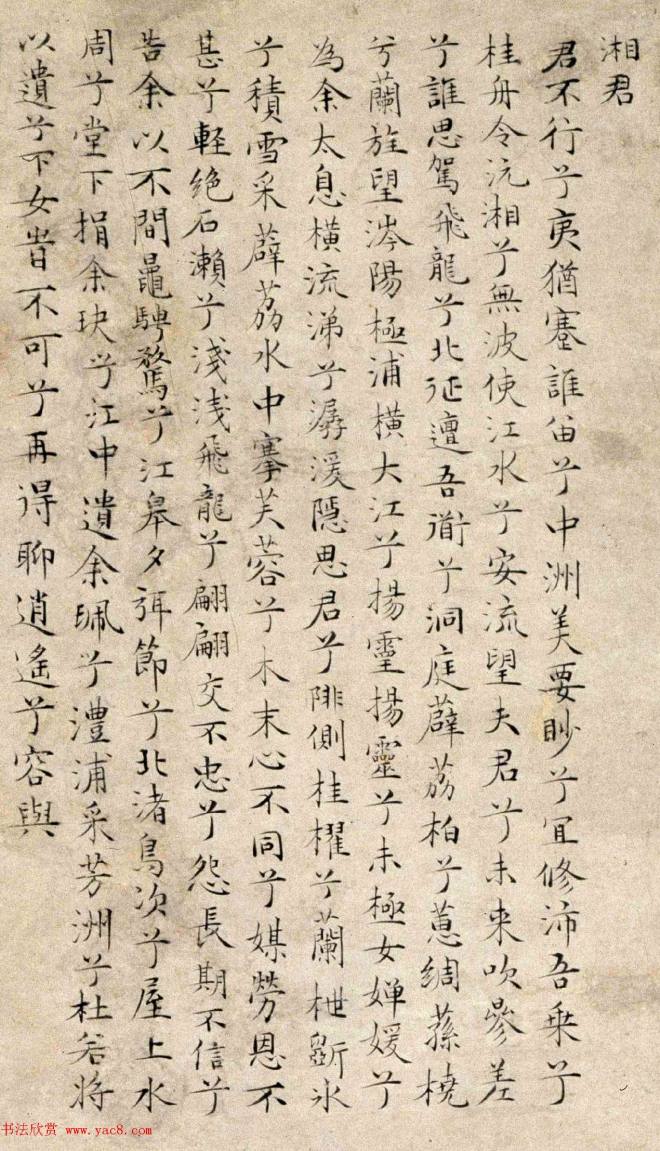 湘君
君不行兮夷猶蹇誰留兮中洲美要眇兮宜修沛吾乗兮
桂舟令沅湘兮無波使江水兮安流望夫君兮未来吹參差
兮誰思駕飛龍兮北征邅吾衜兮洞庭薜荔柏兮蕙綢蓀橈
兮蘭旌望涔陽極浦横大江兮揚靈揚靈兮未極女嬋媛兮
為余太息横流涕兮潺湲隱思君兮陫側桂櫂兮蘭枻斲氷
兮積雪采薜荔水中搴芙蓉兮木末心不同兮媒勞恩不
甚兮輕绝石瀨兮淺淺飛龍兮翩翩交不忠兮怨長期不信兮
告余以不閒鼂騁騖兮江皋夕弭節兮北渚鳥次兮屋上水
周兮堂下捐余玦兮江中遺余珮兮澧浦采芳洲兮杜若将
以遺兮下女旹不可兮再得聊逍遙兮容與
书法欣赏 www.yac8.com